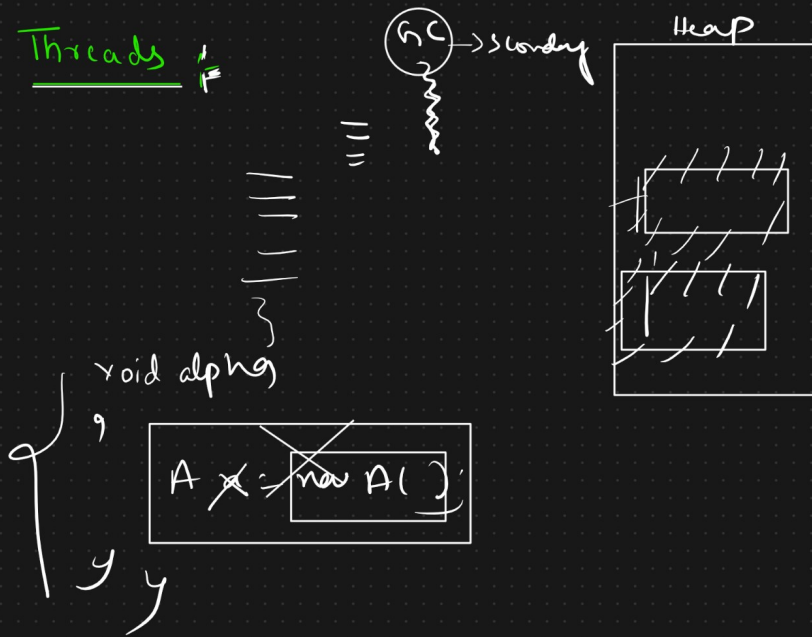 Threads :
GC → scondary
Heap
}
void alpha
A x = new A( );
}
}